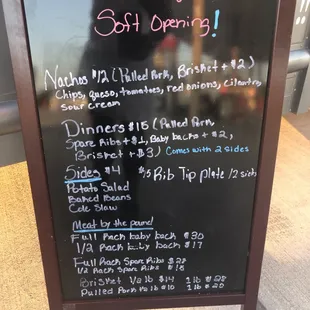 Soft Opening!
Nachos $12 (Pulled Pork, Brisket +$2)
Chips, queso, tomatoes, red onions, cilantro,
sour cream
Dinners $15 (Pulled Pork,
Spare Ribs +$1, Baby backs +$2,
Brisket +$3) Comes with 2 sides
Sides $4 $15 Rib Tip Plate /2 sides
Potato Salad
Baked Beans
Cole Slaw
Meat by the pound
Full Rack baby back $30
1/2 Rack baby back $17
Full Rack Spare Ribs $28
1/2 Rack Spare Ribs $16
Brisket 1/2 lb $14 1 lb $28
Pulled Pork 1/2 lb $10 1 lb $20